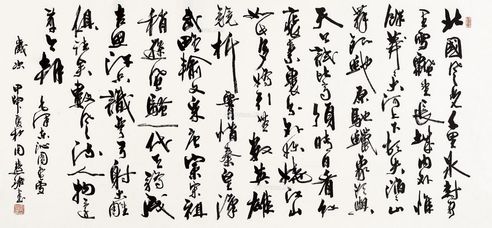 北國風光千里冰封
万里雪飄望長城内外惟
餘莽莽大河上下頓失滔滔山
舞銀蛇原馳蠟象欲與
天公試比高須晴日看紅
裝素裹分外妖嬈江山
如此多嬌引無數英雄
競折腰惜秦皇漢
武略輸文采唐宗宋祖
稍遜風騷一代天驕成
吉思汗只識彎弓射大雕
俱往矣數風流人物還
看今朝 毛澤東沁園春雪
歲次甲申